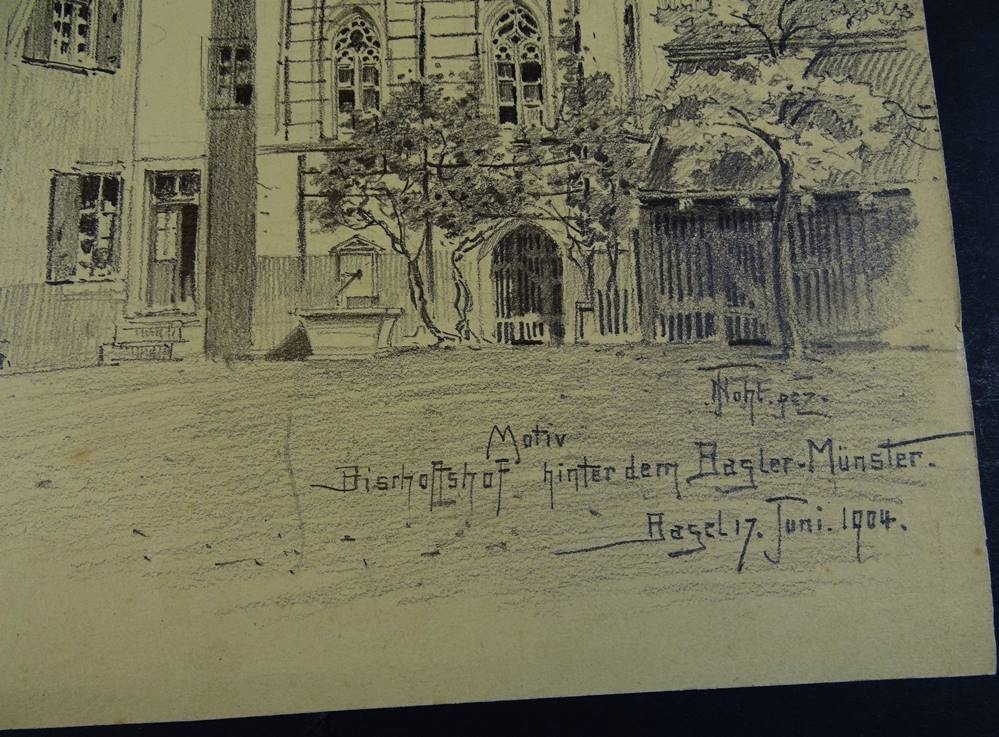 gez.
Motiv
Bischoffshof hinter dem Basler-Münster.
Basel 17. Juni. 1904.